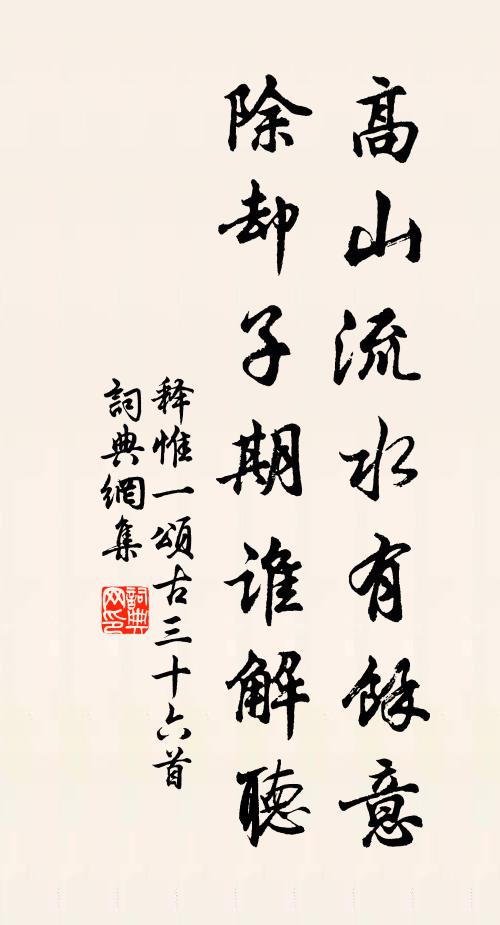 高山流水有餘意
除却子期谁解聽
释惟一頌古三十六首
詞典網集
詞典网印